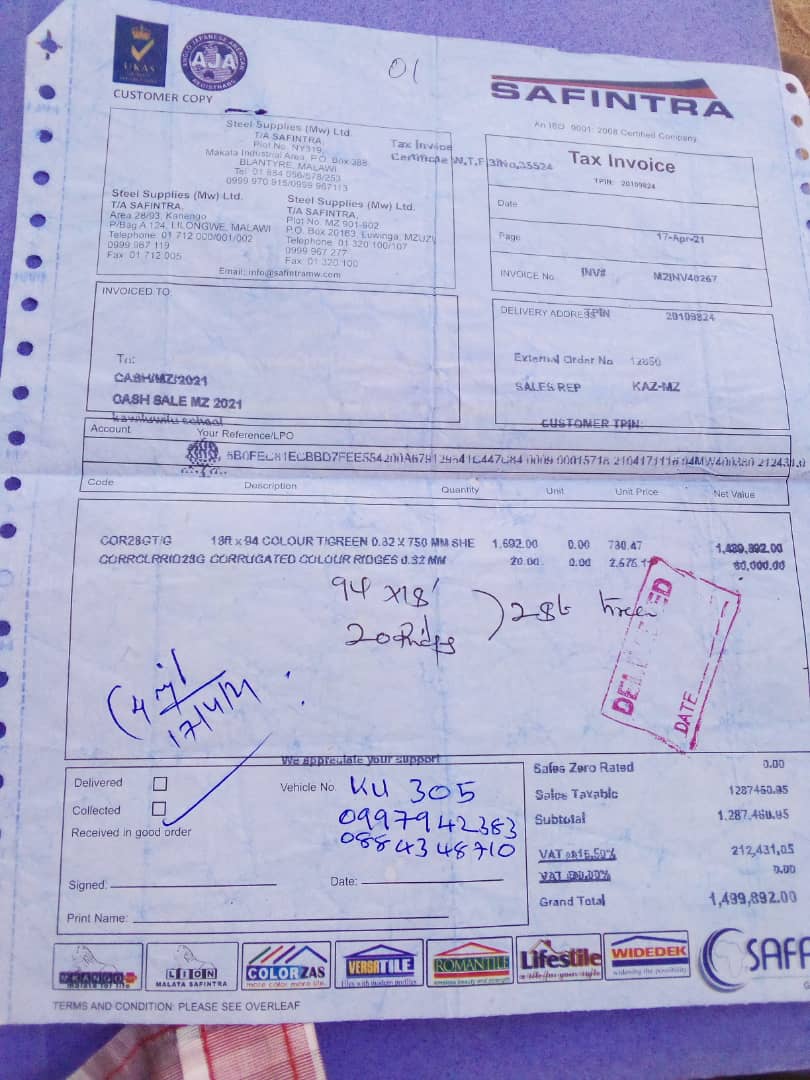 UKAS
ANGLO JAPANESE AMERICAN
AJA
REGISTRARS
01
CUSTOMER COPY
SAFINTRA
An ISO 9001: 2008 Certified Company
Steel Supplies (Mw) Ltd.
T/A SAFINTRA,
Plot No. NY319,
Makata Industrial Area, P.O. Box 388
BLANTYRE, MALAWI
Tel: 01 854 056/578/253
0999 970 915/0999 967113
Tax Invoice
Certificate W.T.F 3No.35524
Tax Invoice
TPIN: 20109824
Steel Supplies (Mw) Ltd.
T/A SAFINTRA,
Area 28/93, Kanengo
P/Bag A 124, LILONGWE, MALAWI
Telephone: 01 712 000/001/002
0999 967 119
Fax: 01 712 005
Steel Supplies (Mw) Ltd.
T/A SAFINTRA,
Plot No. MZ 901-902
P.O. Box 20163, Luwinga, MZUZU
Telephone: 01 320 100/107
0999 967 277
Fax: 01 320 100
Email: info@safintramw.com
Date
Page 17-Apr-21
INVOICE No. INV# MZINV40267
INVOICED TO:
To:
CASH/MZ/2021
CASH SALE MZ 2021
school
DELIVERY ADDRESS TPIN 20109824
External Order No 12850
SALES REP KAZ-MZ
CUSTOMER TPIN:
Account Your Reference/LPO
Code Description Quantity Unit Unit Price Net Value
COR28GT/G 18ft x 94 COLOUR T/GREEN 0.32 X 750 MM SHE 1,692.00 0.00 780.47
CORRCLRRID28G CORRUGATED COLOUR RIDGES 0.32 MM 20.00 0.00 60,000.00
94 x18'
20 Ridges
28G
17/4/21
DATE
We appreciate your support
Delivered
Collected
Received in good order
Vehicle No. KU 305
0997942383
0884348710
Signed:
Date:
Print Name:
Sales Zero Rated 0.00
Sales Taxable 1287460.95
Subtotal 1,287,460.95
VAT 212,431.05
VAT 0.00
Grand Total 1,499,892.00
LION
MALATA SAFINTRA
COLORZAS
more color more life.
VERSATILE
tiles with modern profiles
ROMANTILE
timeless beauty and strength
Lifestile
a tile for your style
WIDEDEK
widening the possibility
SAFF
TERMS AND CONDITION: PLEASE SEE OVERLEAF